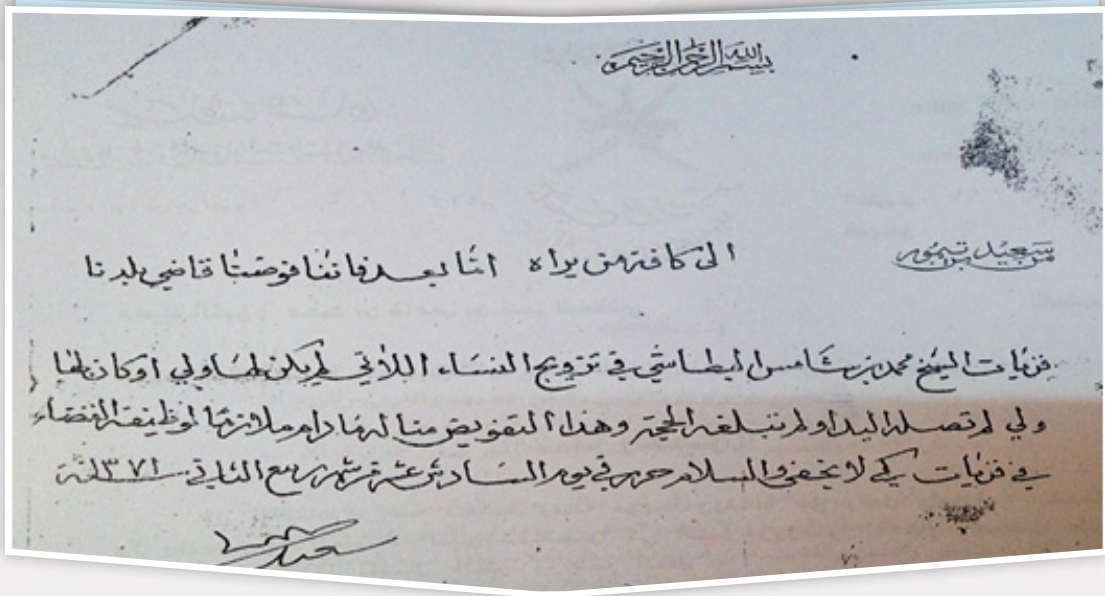 بسم الله الرحمن الرحيم
من سعيد بن تيمور الى كافة من يراه اما بعد فاننا فوضنا قاضي بلدنا
قريات الشيخ محمد بن شامس البطاشي في تزويج النساء اللاتي لم يكن لها ولي او كان لها
ولي لم تصله اليد او لم تبلغه الحجة وهذا التفويض منا له ما دام ملازما لوظيفة القضاء
في قريات كي لا يخفى والسلام حرر في يوم السادس عشر من شهر ربيع الثاني سنة ١٣٧١
سعيد